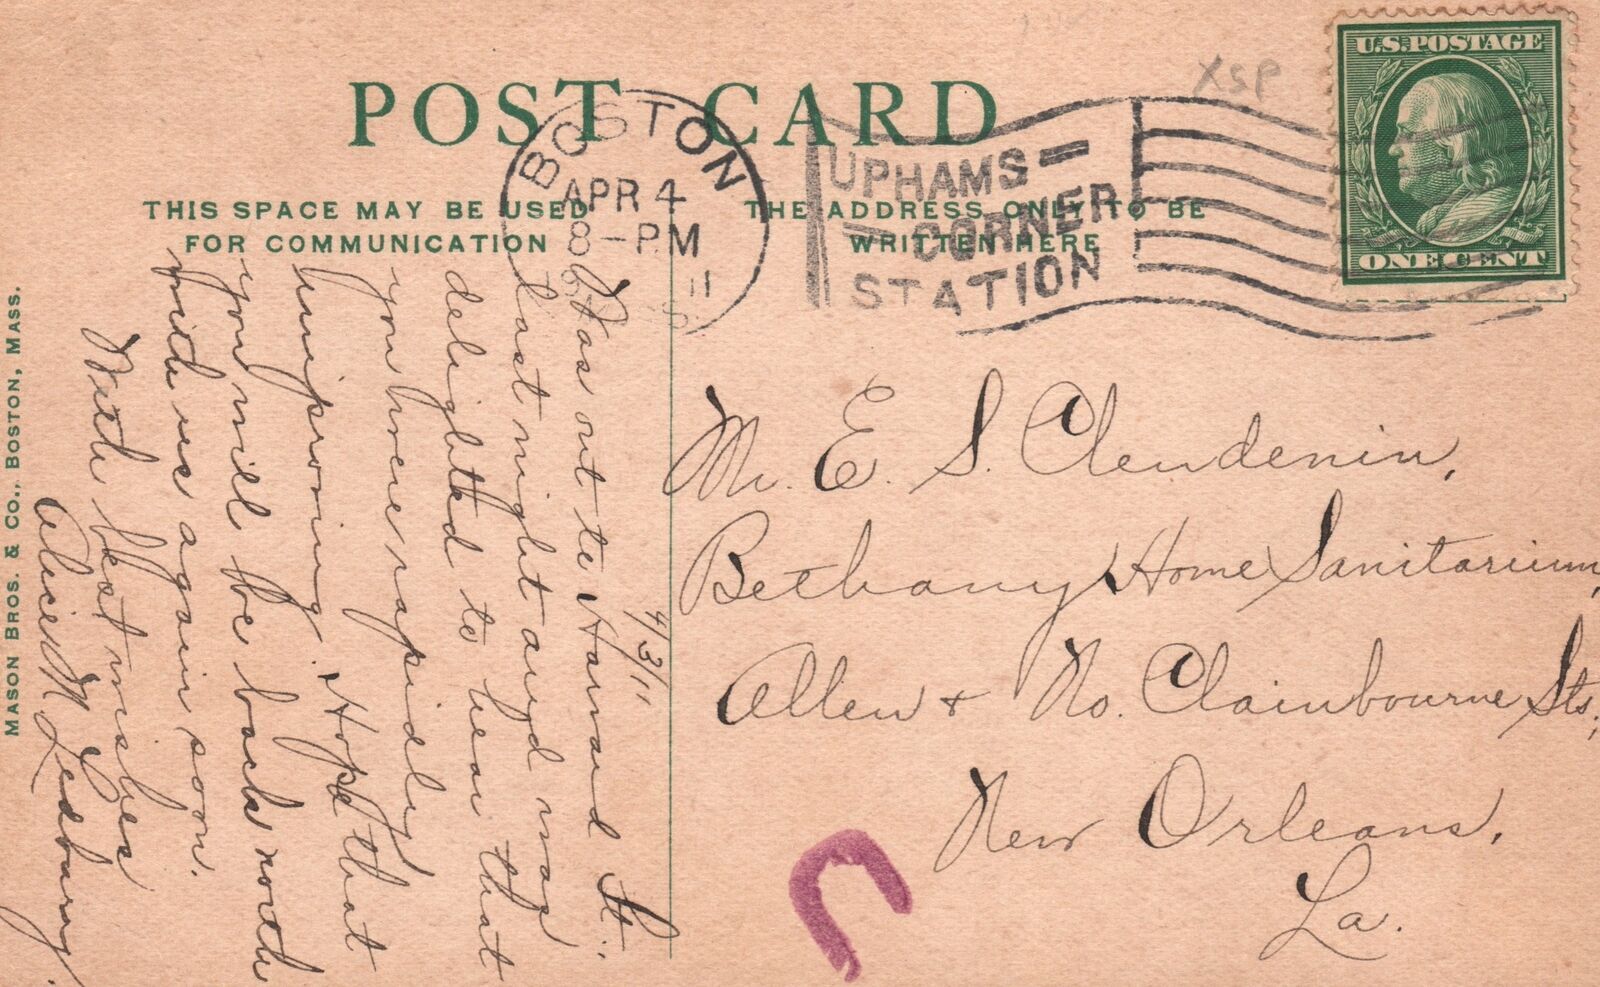 POST CARD
THIS SPACE MAY BE USED
FOR COMMUNICATION
THE ADDRESS ONLY TO BE
WRITTEN HERE
BOSTON
APR 4
8-PM
11
UPHAMS
CORNER
STATION
XSP
U.S. POSTAGE
ONE CENT
4/3/11
Was out to Harvard St.
last night and was
delighted to hear that
you were rapidly
improving. Hope that
you will be back north
with us again soon.
With best wishes
Alice M Ledbury.
Mr. E. S. Clendenin,
Bethany Home Sanitarium,
Allen & No. Clairbourne Sts.,
New Orleans,
La.
MASON BROS. & CO., BOSTON, MASS.